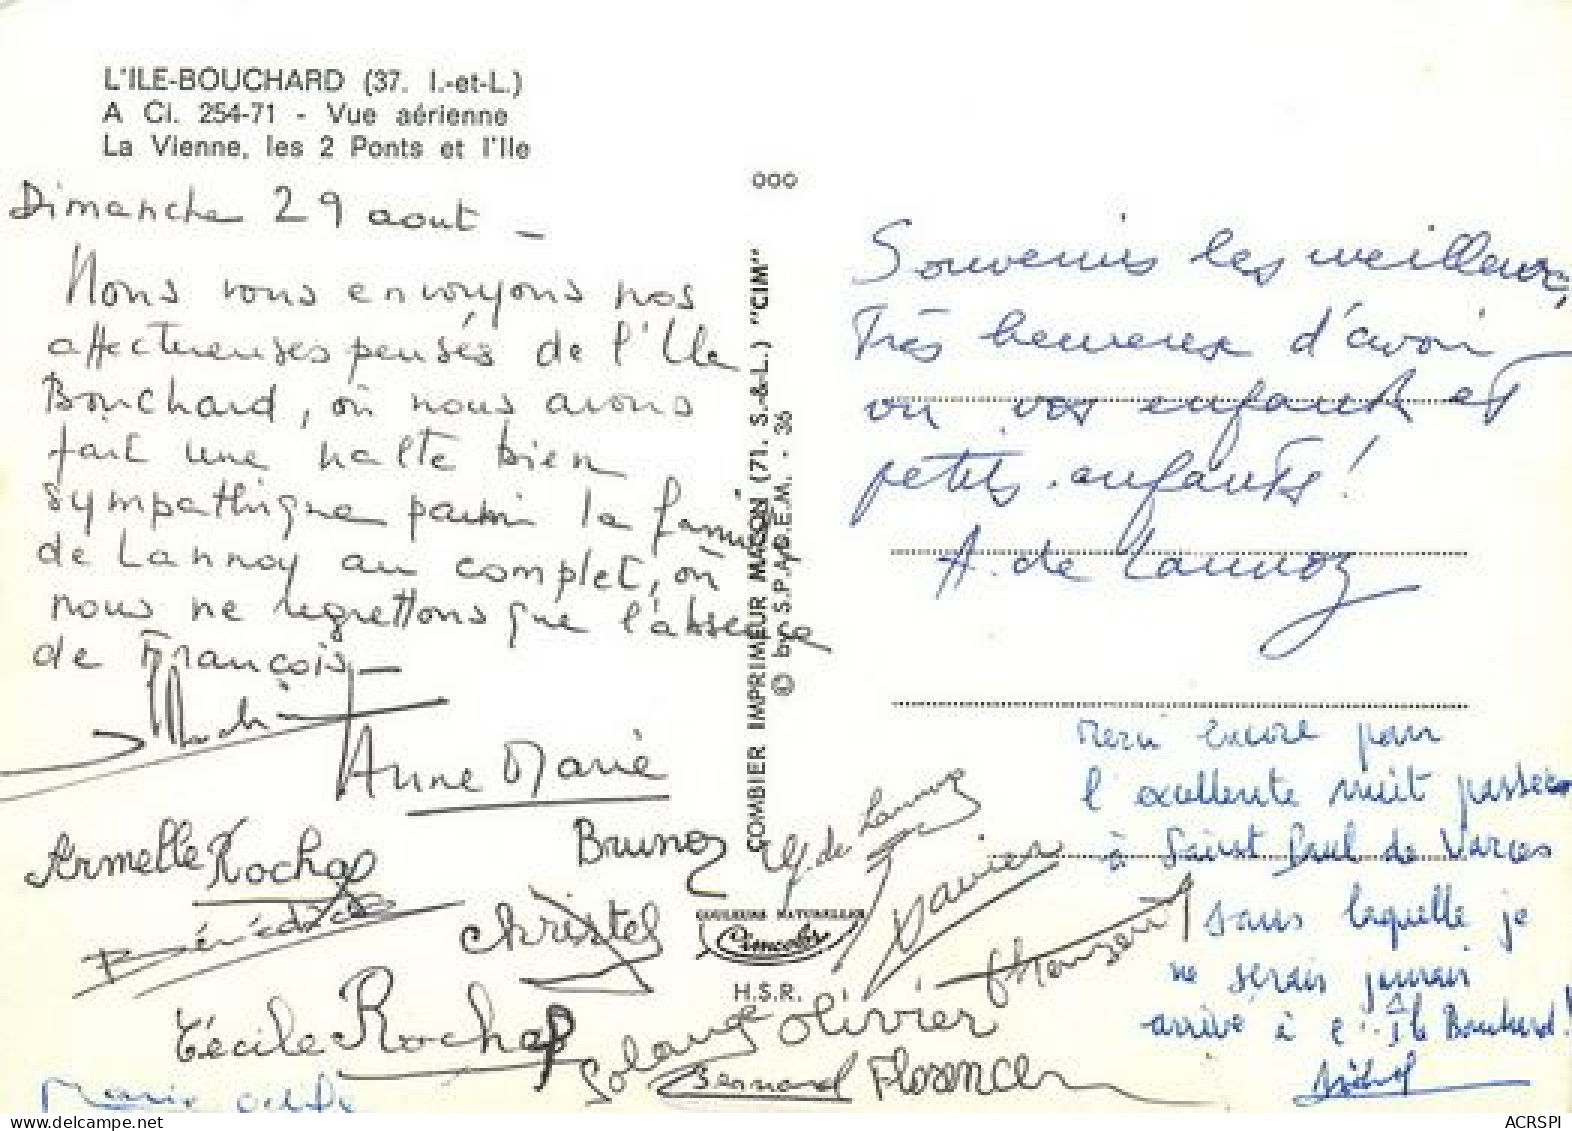 L'ILE-BOUCHARD (37. I.-et-L.)
A Cl. 254-71 - Vue aérienne
La Vienne, les 2 Ponts et l'Ile
Dimanche 29 aout -
Nous vous envoyons nos
affectueuses pensés de l'Ile
Bouchard, où nous avons
fait une halte bien
sympathique parmi la famille
de Lannoy au complet, où
nous ne regrettons que l'absence
de François -
Anne Marie
Armelle Rochas
Bénédicte
Bruno
Christel
Cécile Rochas
Marie Odile
Solange
Olivier
Bernard
Florence
Xavier
G de Lannoy
000
COMBIER IMPRIMEUR MACON (71. S.-&-L.) "CIM"
© by S.P.A.D.E.M. - 36
COULEURS NATURELLES
Cimcolor
H.S.R.
Souvenirs les meilleurs,
Très heureux d'avoir
vu vos enfants et
petits-enfants!
A. de Lannoy
Merci encore pour
l'excellente nuit passée
à Saint Paul de Varces
sans laquelle je
ne serais jamais
arrivé à l'Ile Bouchard!
Michel
ACRSPI